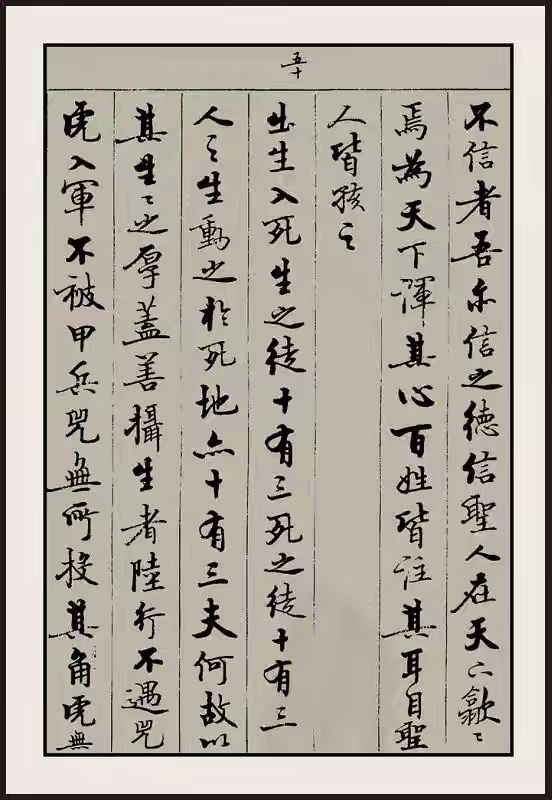 五十
不信者吾亦信之德信聖人在天下歙〻
焉為天下渾其心百姓皆注其耳目聖
人皆孩之
出生入死生之徒十有三死之徒十有三
人之生動之於死地亦十有三夫何故以
其生〻之厚蓋善攝生者陸行不遇兕
虎入軍不被甲兵兕無所投其角虎無